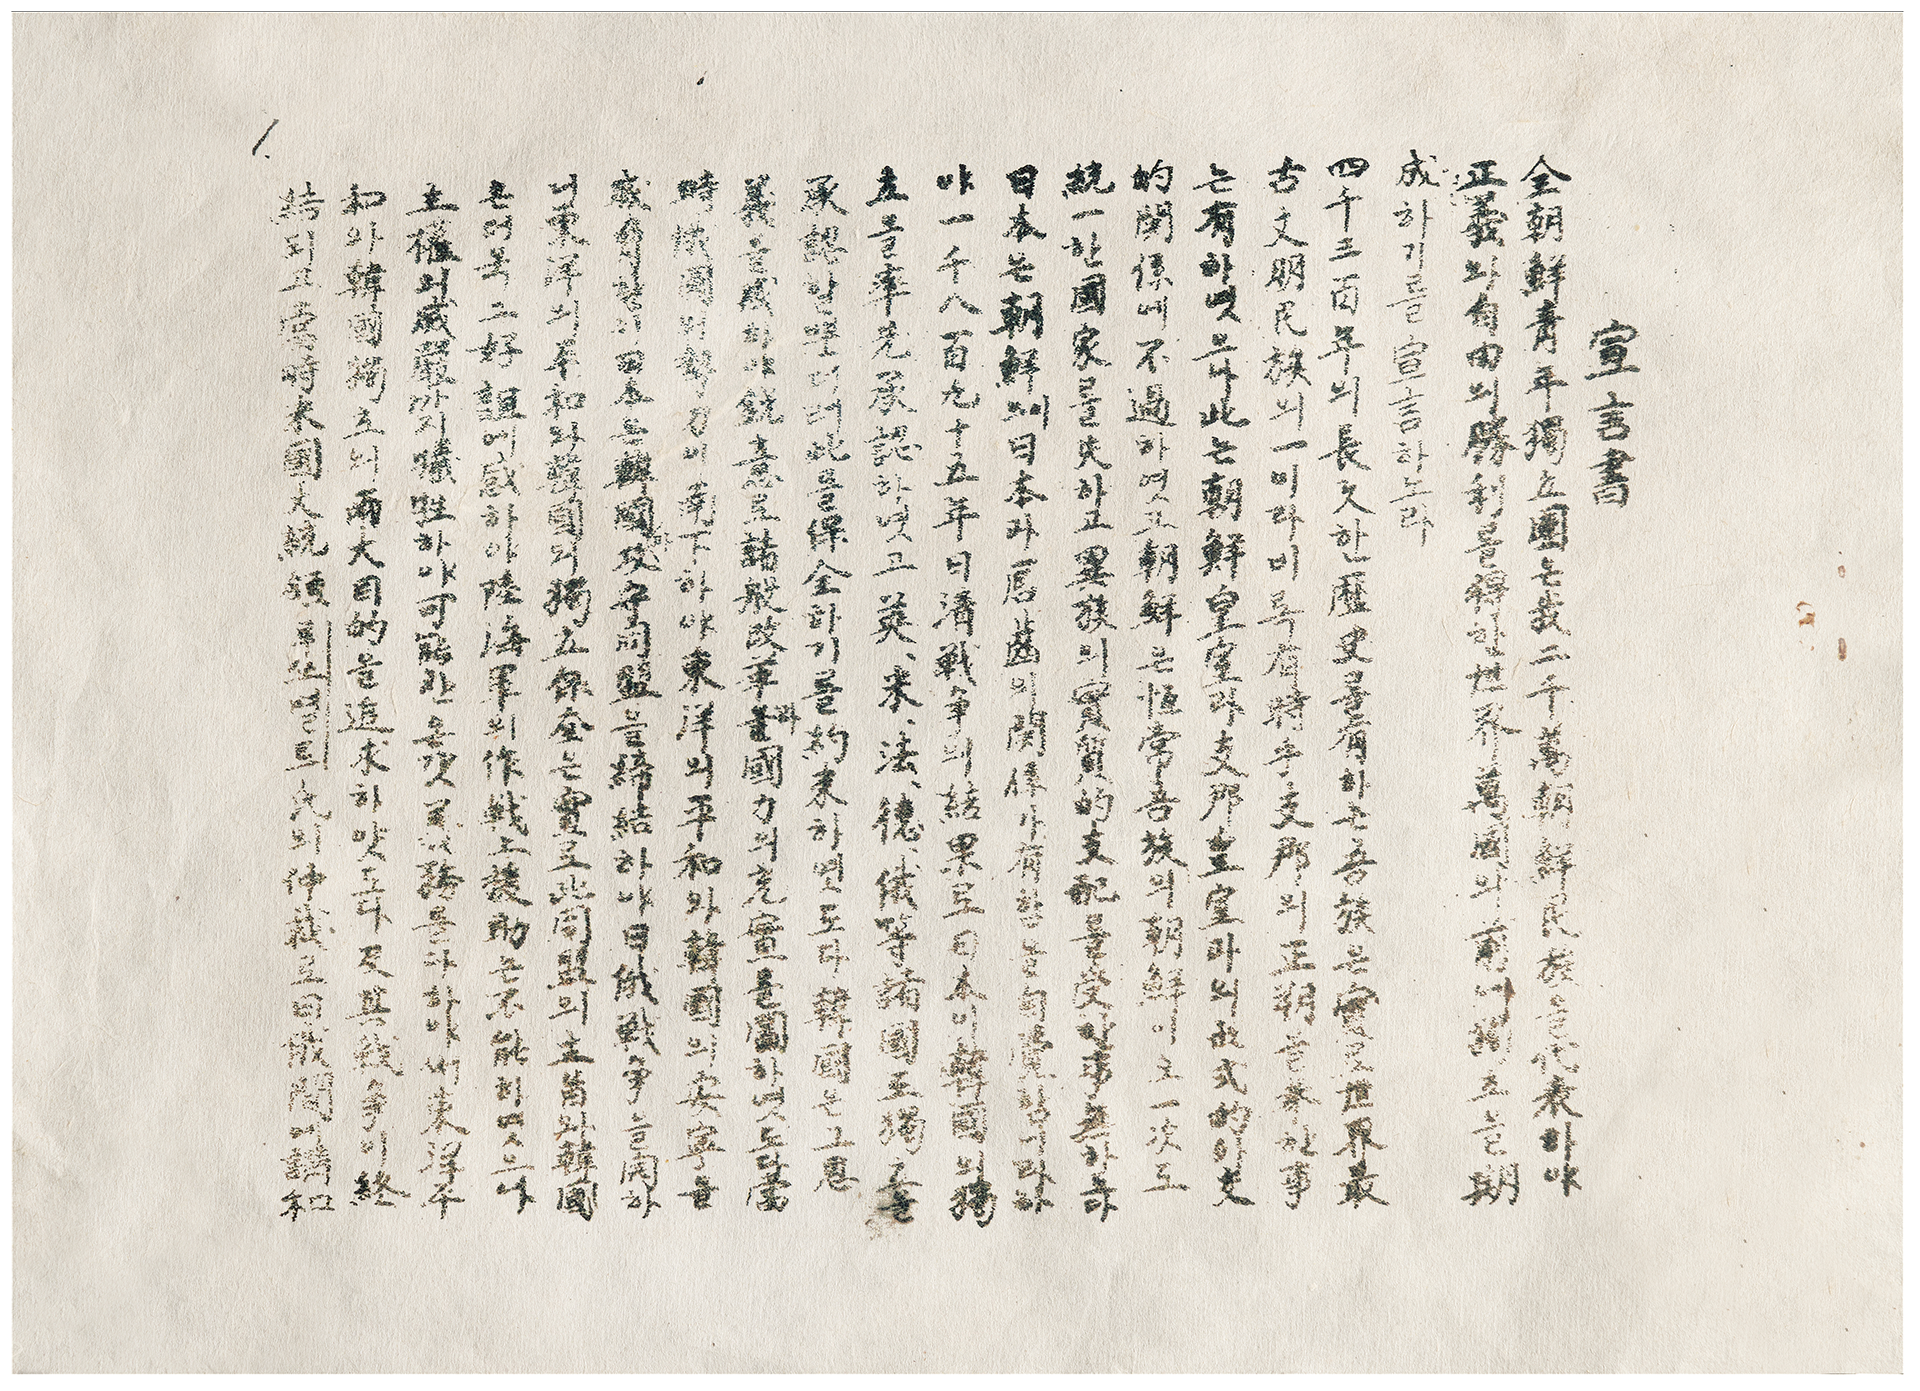 宣言書
全朝鮮靑年獨立團은我二千萬朝鮮民族을代表하야
正義와自由의勝利를得한世界萬國의前에獨立을期
成하기를宣言하노라
四千三百年의長久한歷史를有하는吾族은實로世界最
古文明民族의一이라비록有時乎支那의正朔을奉한事
는有하엿으나此는朝鮮皇室과支那皇室과의形式的外交
的関係에不過하엿고朝鮮은恒常吾族의朝鮮이오一次도
統一한國家를失하고異族의實質的支配를受한事無하도다
日本은朝鮮이日本과唇齒의関係가有함을自覺함이라하
야一千八百九十五年日淸戰爭의結果로日本이韓國의獨
立을率先承認하엿고英、米、法、德、俄等諸國도獨立을
承認할뿐더러此를保全하기를約束하엿도다韓國은그恩
義를感하야銳意로諸般改革과國力의充實을圖하엿도다當
時俄國의勢力이南下하야東洋의平和와韓國의安寧을
威脅할새日本은韓國과攻守同盟을締結하야日俄戰爭을開하
니東洋의平和와韓國의獨立保全은實로此同盟의主旨와韓國
은더욱그好誼에感하야陸海軍의作戰上援助는不能하엿으나
主權의威嚴까지犧牲하야可能한온갓義務를다하야써東洋平
和와韓國獨立의兩大目的을追求하얏도다及其戰爭이終
結되고當時米國大統領루스벨트氏의仲裁로日俄間에講和
1.